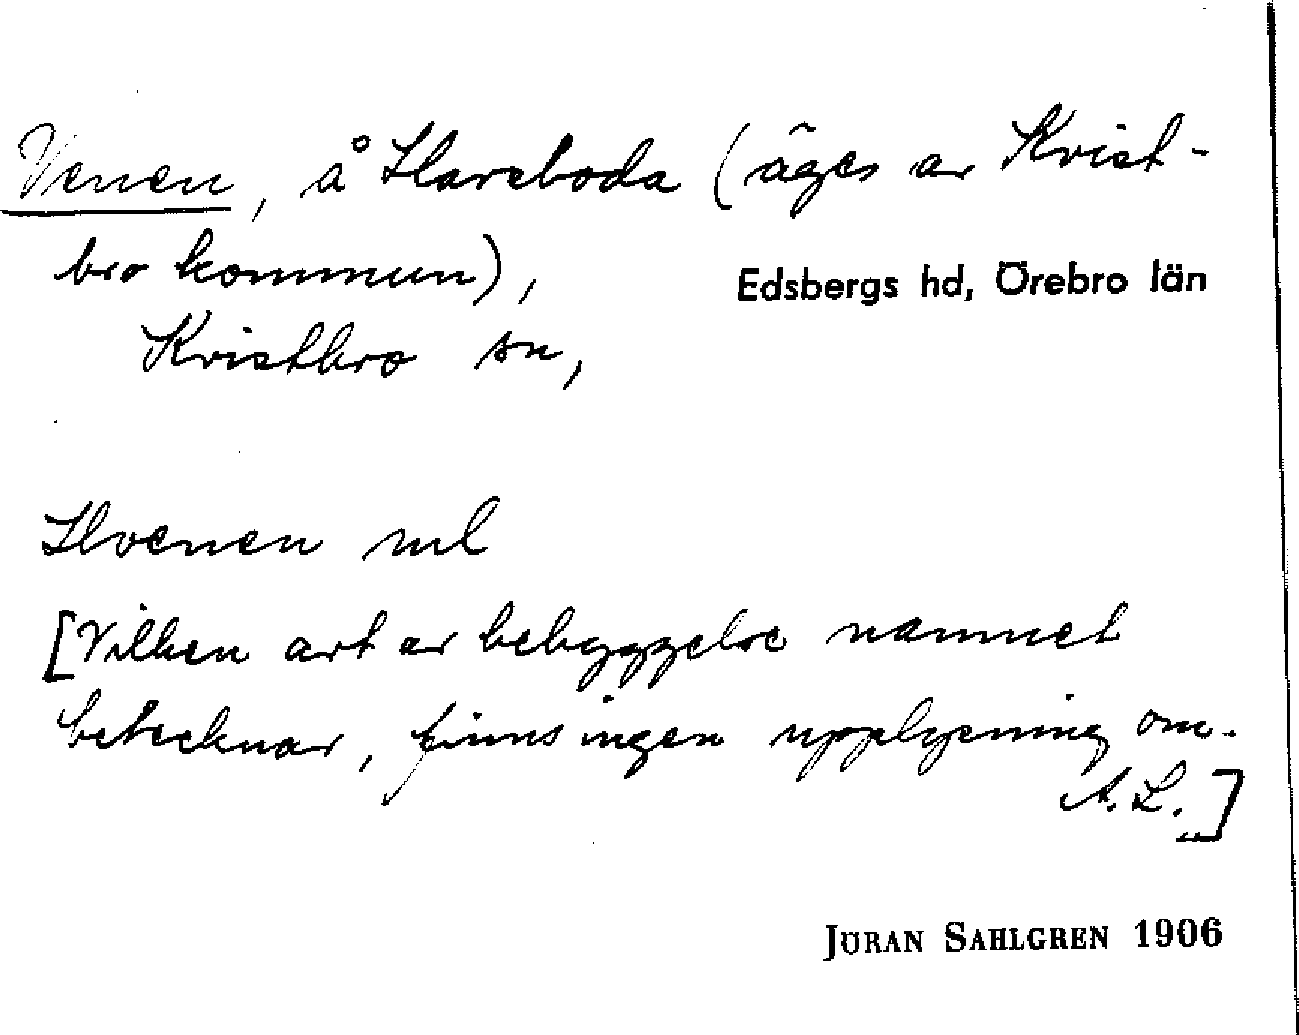 Venen, å Hareboda (äges av Krist-
bro kommun),
Edsbergs hd, Örebro län
Kvistbro sn,
Hvenen ml
[Vilken art av bebyggelse namnet
betecknar, finns ingen upplysning om.
A.L.]
JÖRAN SAHLGREN 1906